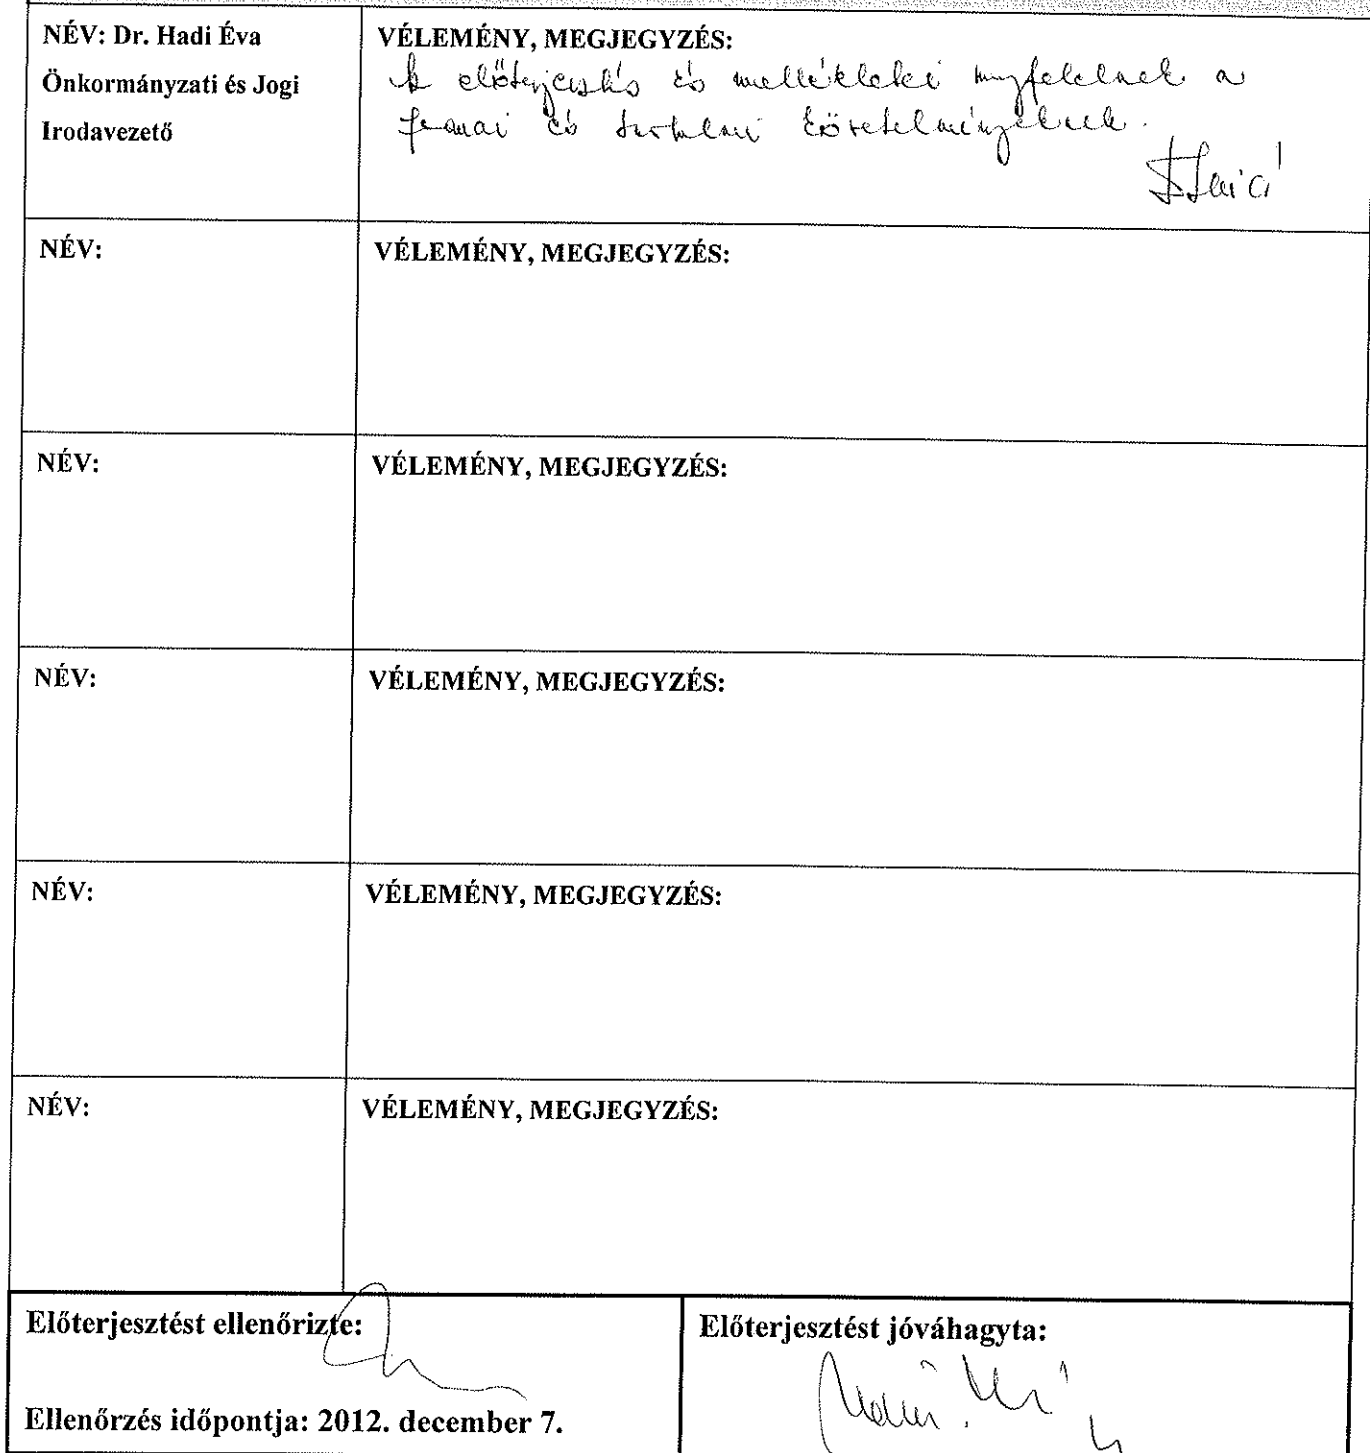 NÉV: Dr. Hadi Éva
Önkormányzati és Jogi
Irodavezető
VÉLEMÉNY, MEGJEGYZÉS:
előterjesztés és mellékletei megfelelnek a
formai és tartalmi követelményeknek.
NÉV:
VÉLEMÉNY, MEGJEGYZÉS:
NÉV:
VÉLEMÉNY, MEGJEGYZÉS:
NÉV:
VÉLEMÉNY, MEGJEGYZÉS:
NÉV:
VÉLEMÉNY, MEGJEGYZÉS:
NÉV:
VÉLEMÉNY, MEGJEGYZÉS:
Előterjesztést ellenőrizte:
Ellenőrzés időpontja: 2012. december 7.
Előterjesztést jóváhagyta: